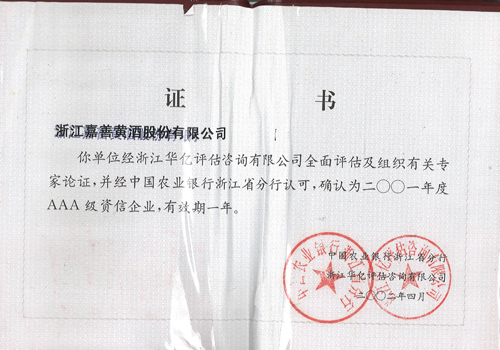 证 书
浙江嘉善黄酒股份有限公司
你单位经浙江华亿评估咨询有限公司全面评估及组织有关专
家论证,并经中国农业银行浙江省分行认可,确认为二〇〇一年度
AAA 级资信企业,有效期一年。
中国农业银行浙江省分行
浙江华亿评估咨询有限公司
二〇〇二年四月